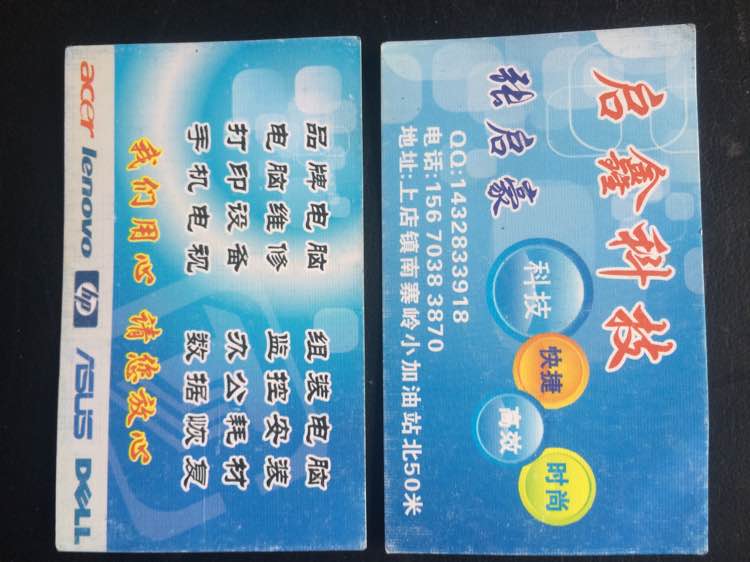 启鑫科技
张启豪
科技
快捷
高效
时尚
QQ:1432833918
电话:156 7038 3870
地址:上店镇南寨岭小加油站北50米
品牌电脑 组装电脑
电脑维修 监控安装
打印设备 办公耗材
手机电视 数据恢复
我们用心 请您放心
acer lenovo hp ASUS DELL